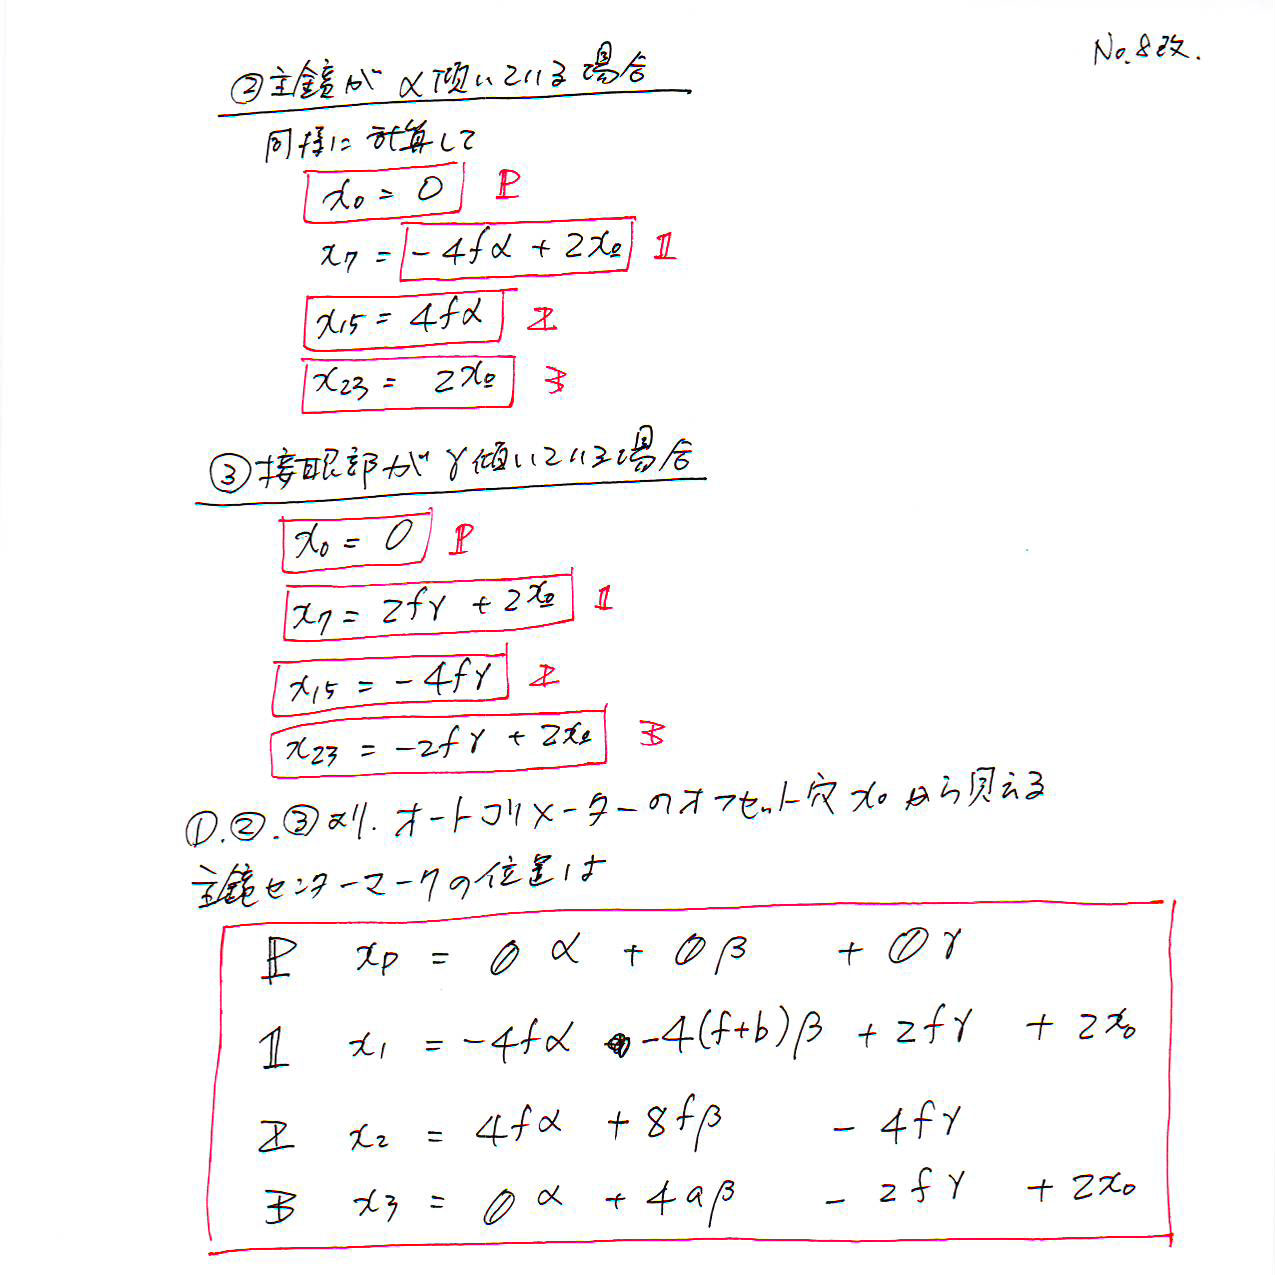 No.8改.
②主鏡がα傾いている場合
同様に計算して
x₀ = 0 P
x₇ = -4fα + 2x₀ 1
x₁₅ = 4fα 2
x₂₃ = 2x₀ 3
③接眼部がγ傾いている場合
x₀ = 0 P
x₇ = 2fγ + 2x₀ 1
x₁₅ = -4fγ 2
x₂₃ = -2fγ + 2x₀ 3
①.②.③より.オートコリメーターのオフセット穴x₀から見える
主鏡センターマークの位置は
P xp = 0α + 0β + 0γ
1 x₁ = -4fα -4(f+b)β + 2fγ + 2x₀
2 x₂ = 4fα + 8fβ - 4fγ
3 x₃ = 0α + 4aβ - 2fγ + 2x₀